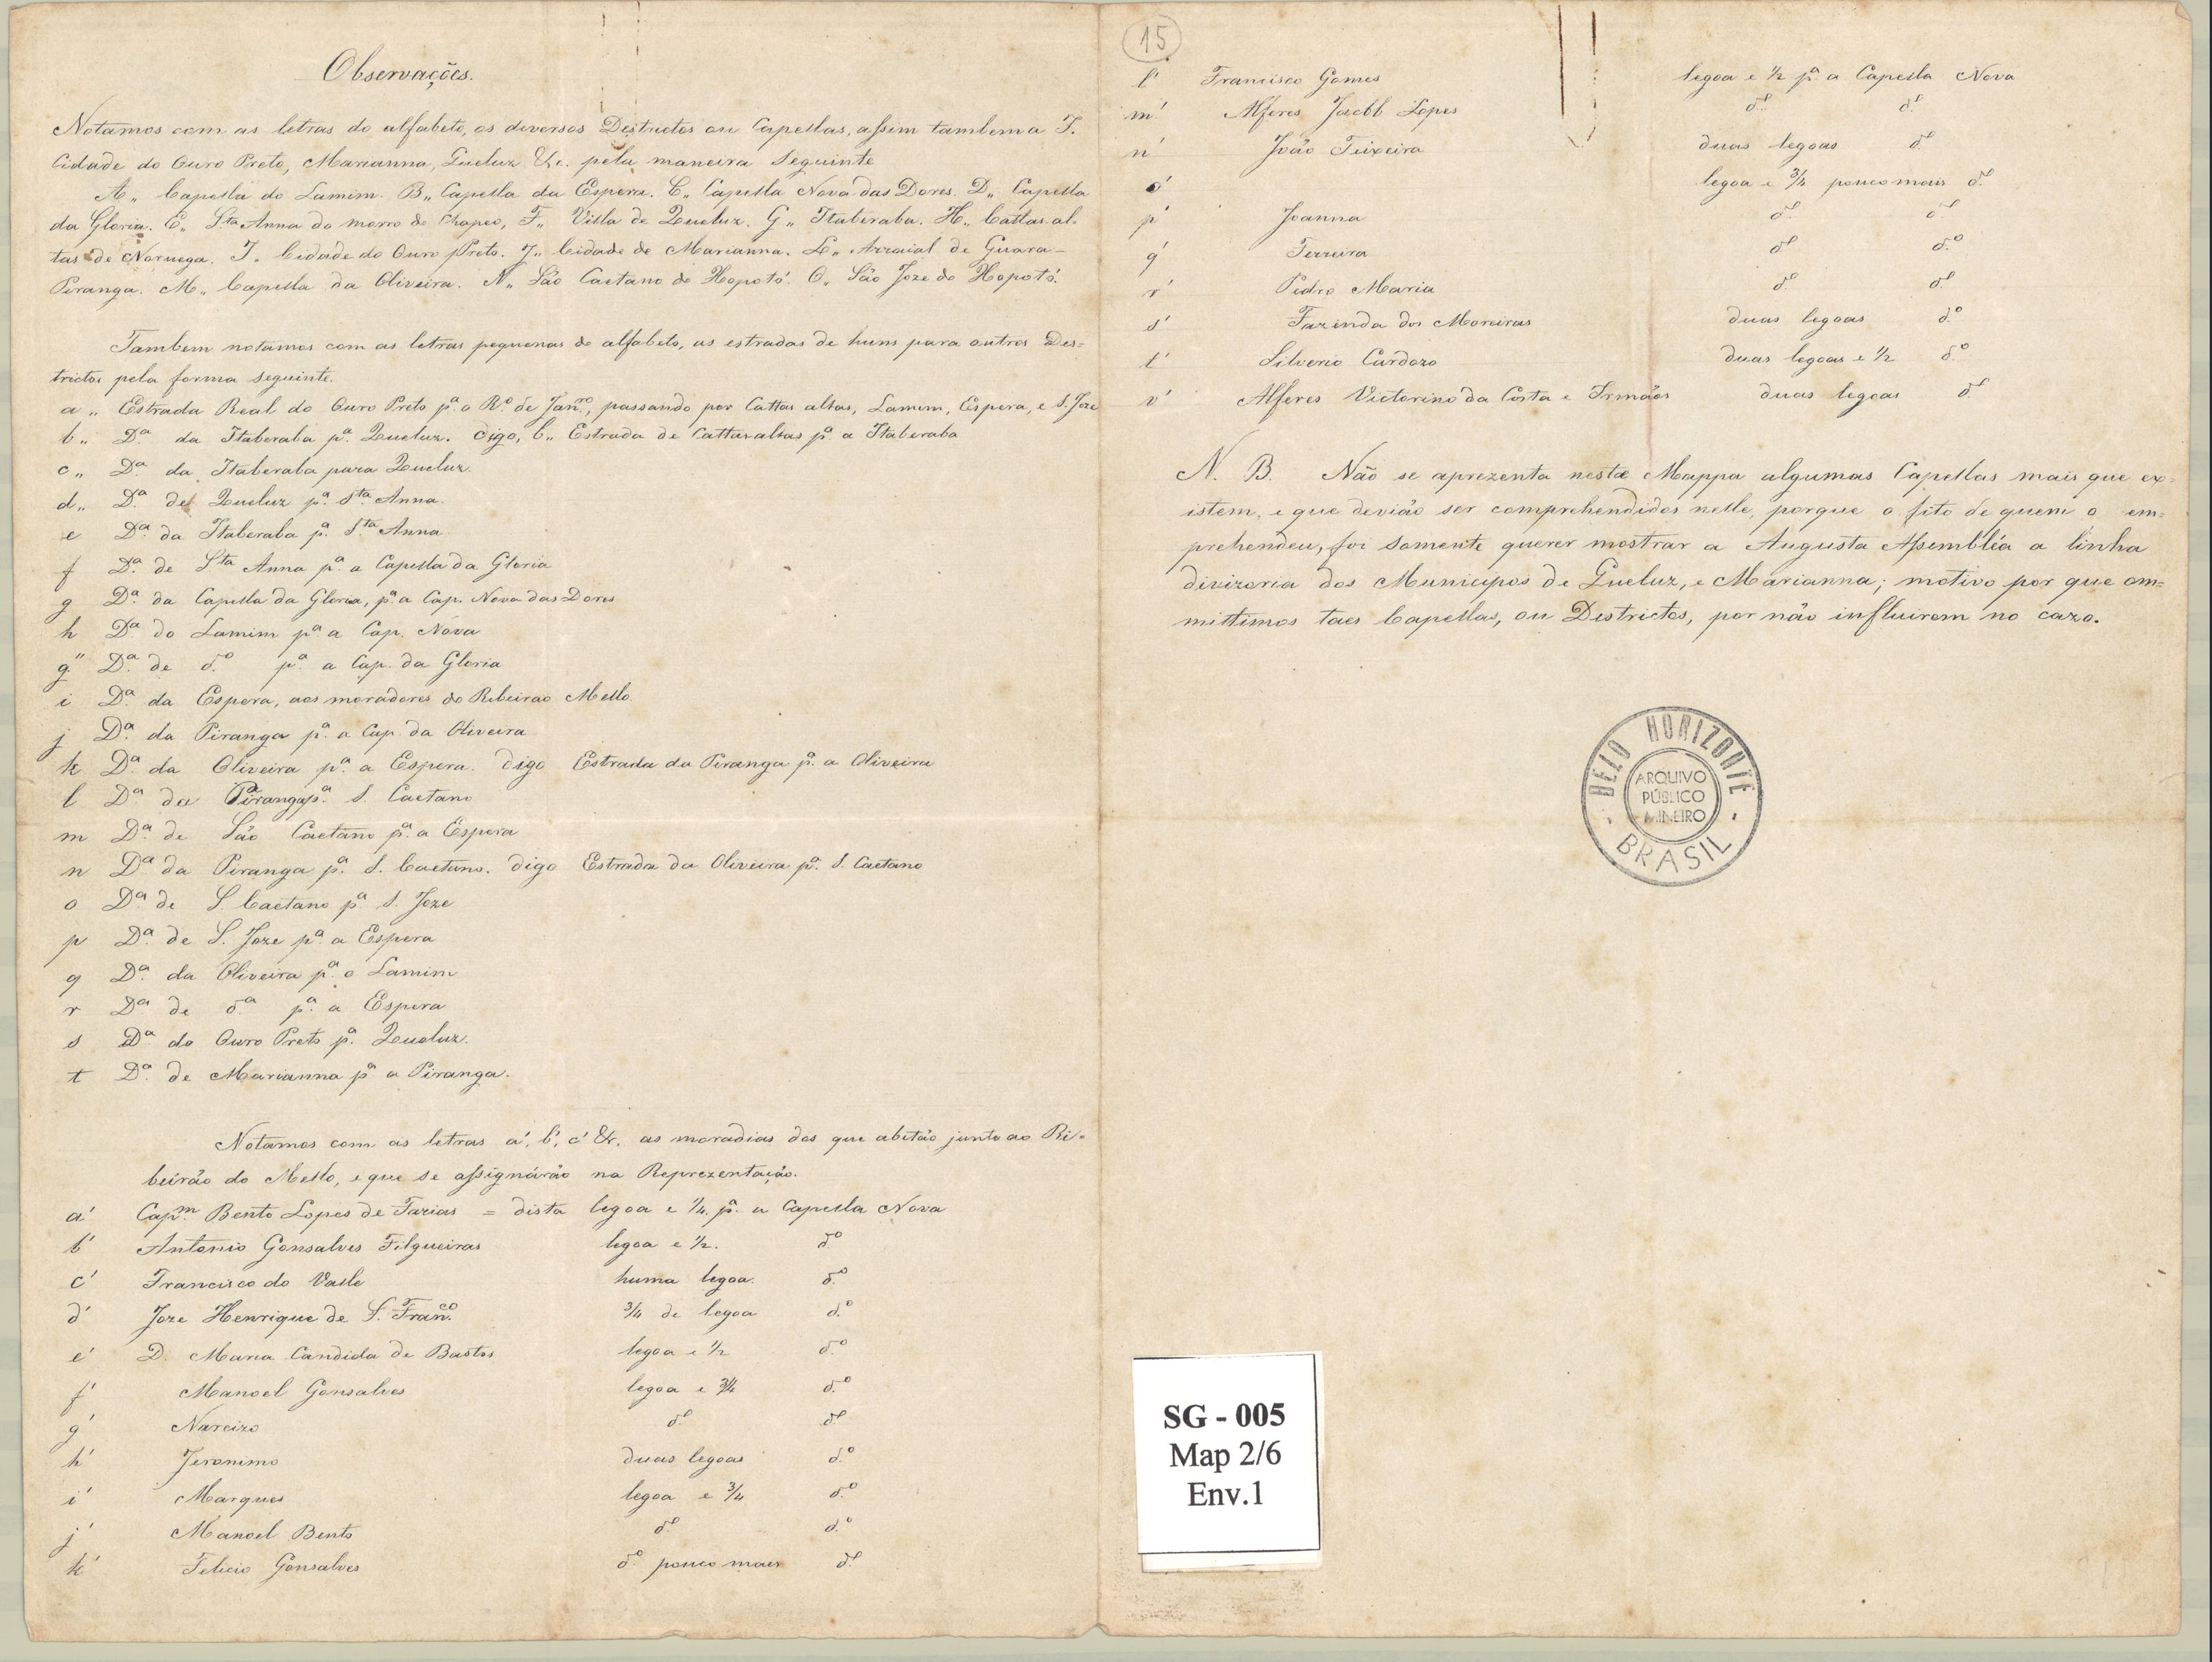 Observações.
Notamos com as letras do alfabeto, os diversos Destrictos ou Capellas, assim tambem a I.
Cidade do Ouro Preto, Marianna, Queluz &c. pela maneira seguinte
A,, Capella do Lamim. B,, Capella da Espera. C,, Capella Nova das Dores. D,, Capella
da Gloria. E,, Sta Anna do morro do Chapeo, F,, Villa de Queluz. G,, Itaberaba. H,, Cattas al-
tas de Noruega. I,, Cidade do Ouro Preto. J,, Cidade de Marianna. L,, Arraial de Guara-
Piranga. M,, Capella da Oliveira. N,, São Caetano do Xopotó. O,, São Joze do Xopotó.
Tambem notamos com as letras pequenas do alfabeto, as estradas de huns para outros Des=
trictos pela forma seguinte.
a ,, Estrada Real do Ouro Preto pª. o Rº. de Janrº., passando por Cattas altas, Lamim, Espera, e S. Joze
b ,, Dª. da Itaberaba pª. Queluz. digo, b,, Estrada de Cattas altas pª. a Itaberaba
c ,, Dª. da Itaberaba para Queluz.
d ,, Dª. de Queluz pª. Sta Anna.
e Dª. da Itaberaba pª. Sta Anna
f Dª. de Sta Anna pª. a Capella da Gloria
g Dª. da Capella da Gloria, pª. a Cap. Nova das Dores
h Dª. do Lamim pª. a Cap. Nova
g" Dª. de dº. pª. a Cap. da Gloria
i Dª. da Espera, aos moradores do Ribeirao Mello.
j Dª. da Piranga pª. a Cap. da Oliveira
k Dª. da Oliveira pª. a Espera. digo Estrada da Piranga pª. a Oliveira
l Dª. da Piranga pª. S. Caetano
m Dª. de São Caetano pª. a Espera
n Dª. da Piranga pª. S. Caetano. digo Estrada da Oliveira pª. S. Caetano
o Dª. de S. Caetano pª. S. Joze
p Dª. de S. Joze pª. a Espera
q Dª. da Oliveira pª. o Lamim
r Dª. de dª. pª. a Espera
s Dª. do Ouro Preto pª. Queluz.
t Dª. de Marianna pª. a Piranga.
Notamos com as letras a', b', c' &c. as moradias dos que abitão junto ao Ri=
beirão do Mello, e que se assignárão na Reprezentação.
a' Capm. Bento Lopes de Farias = dista legoa e 1/4. pª. a Capella Nova
b' Antonio Gonsalves Filgueiras legoa e 1/2. dº
c' Francisco do Valle huma legoa. dº.
d' Joze Henrique de S. Franco. 3/4 de legoa dº.
e' D. Maria Candida de Bastos legoa e 1/2 dº.
f' Manoel Gonsalves legoa e 3/4 dº.
g' Narcizo dº. dº.
h' Jeronimo duas legoas dº.
i' Marques legoa e 3/4 dº.
j' Manoel Bento dº. dº.
k' Felicio Gonsalves dº. pouco mais dº.
15
l' Francisco Gomes legoa e 1/2 pª. a Capella Nova
m' Alferes Jacob Lopes dº. dº.
n' João Teixeira duas legoas dº.
o' legoa e 3/4 pouco mais dº.
p' Joanna dº. dº.
q' Ferreira dº. dº.
r' Pedro Maria dº. dº.
s' Fazenda dos Moreiras duas legoas dº.
t' Silverio Cardozo duas legoas e 1/2 dº.
v' Alferes Victorino da Costa e Irmãos duas legoas dº.
N. B. Não se aprezenta neste Mappa algumas Capellas mais que ex=
istem, e que devião ser comprehendidos nelle, porque o fito de quem o em=
prehendeu, foi somente querer mostrar a Augusta Assembléa a linha
divizoria dos Municipos de Queluz, e Marianna; motivo por que om=
mittimos taes Capellas, ou Destrictos, por não influirem no cazo.
BELO HORIZONTE
ARQUIVO
PÚBLICO
MINEIRO
BRASIL
SG - 005
Map 2/6
Env.1